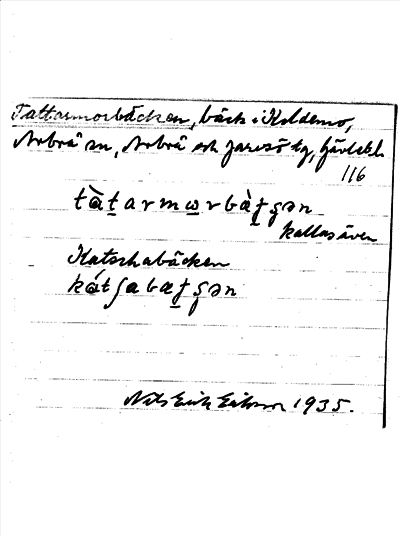 Tattarmorbäcken, bäck i Koldemo,
Arbrå sn, Arbrå och Järvsö tg, Gävlebl.
116
tàt̠armɷrbàt̠ʂən
kallas även
Katschabäcken
kátʃabæt̠ʂən
Nils Erik Eriksson 1935.